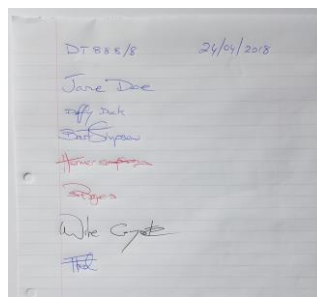 DT 888/8 24/04/2018
Jane Doe
Daffy Duck
Bart Simpson
Homer Simpson
Wile Coyote
Thor